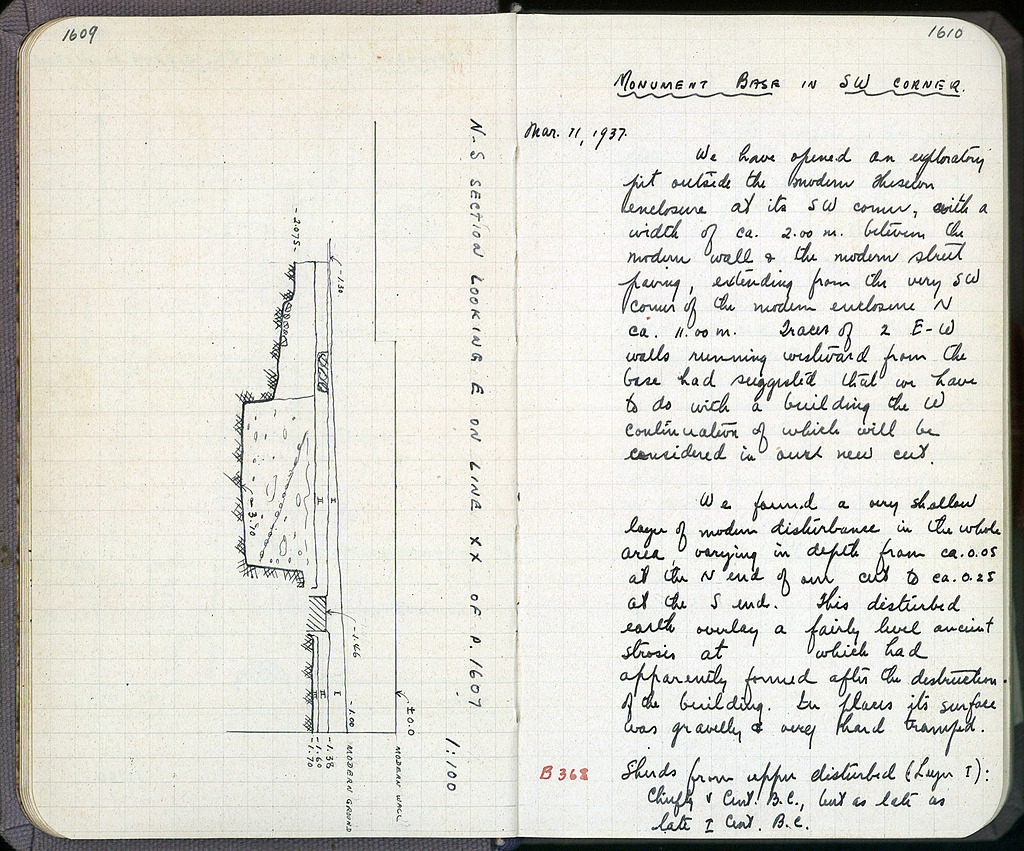 1609
N-S SECTION LOOKING E ON LINE XX OF P. 1607
1:100
-2.075-
-1.30
-3.70
I
II
-1.46
I
II
III
-1.00
±0.0
-1.38
-1.60
-1.70
MODERN GROUND
MODERN WALL
1610
MONUMENT BASE IN SW CORNER.
Mar. 11, 1937.
We have opened an exploratory
pit outside the modern Theseion
enclosure at its SW corner, with a
width of ca. 2.00 m. between the
modern wall & the modern street
paving, extending from the very SW
corner of the modern enclosure N
ca. 11.00 m. Traces of 2 E-W
walls running westward from the
base had suggested that we have
to do with a building the W
continuation of which will be
considered in our new cut.
We found a very shallow
layer of modern disturbance in the whole
area, varying in depth from ca. 0.05
at the N end of our cut to ca. 0.25
at the S end. This disturbed
earth overlay a fairly level ancient
strosis at which had
apparently formed after the destruction
of the building. In places its surface
was gravelly & very hard tramped.
B 368 Sherds from upper disturbed (Layer I):
Chiefly V Cent. B.C., but as late as
late I Cent. B.C.